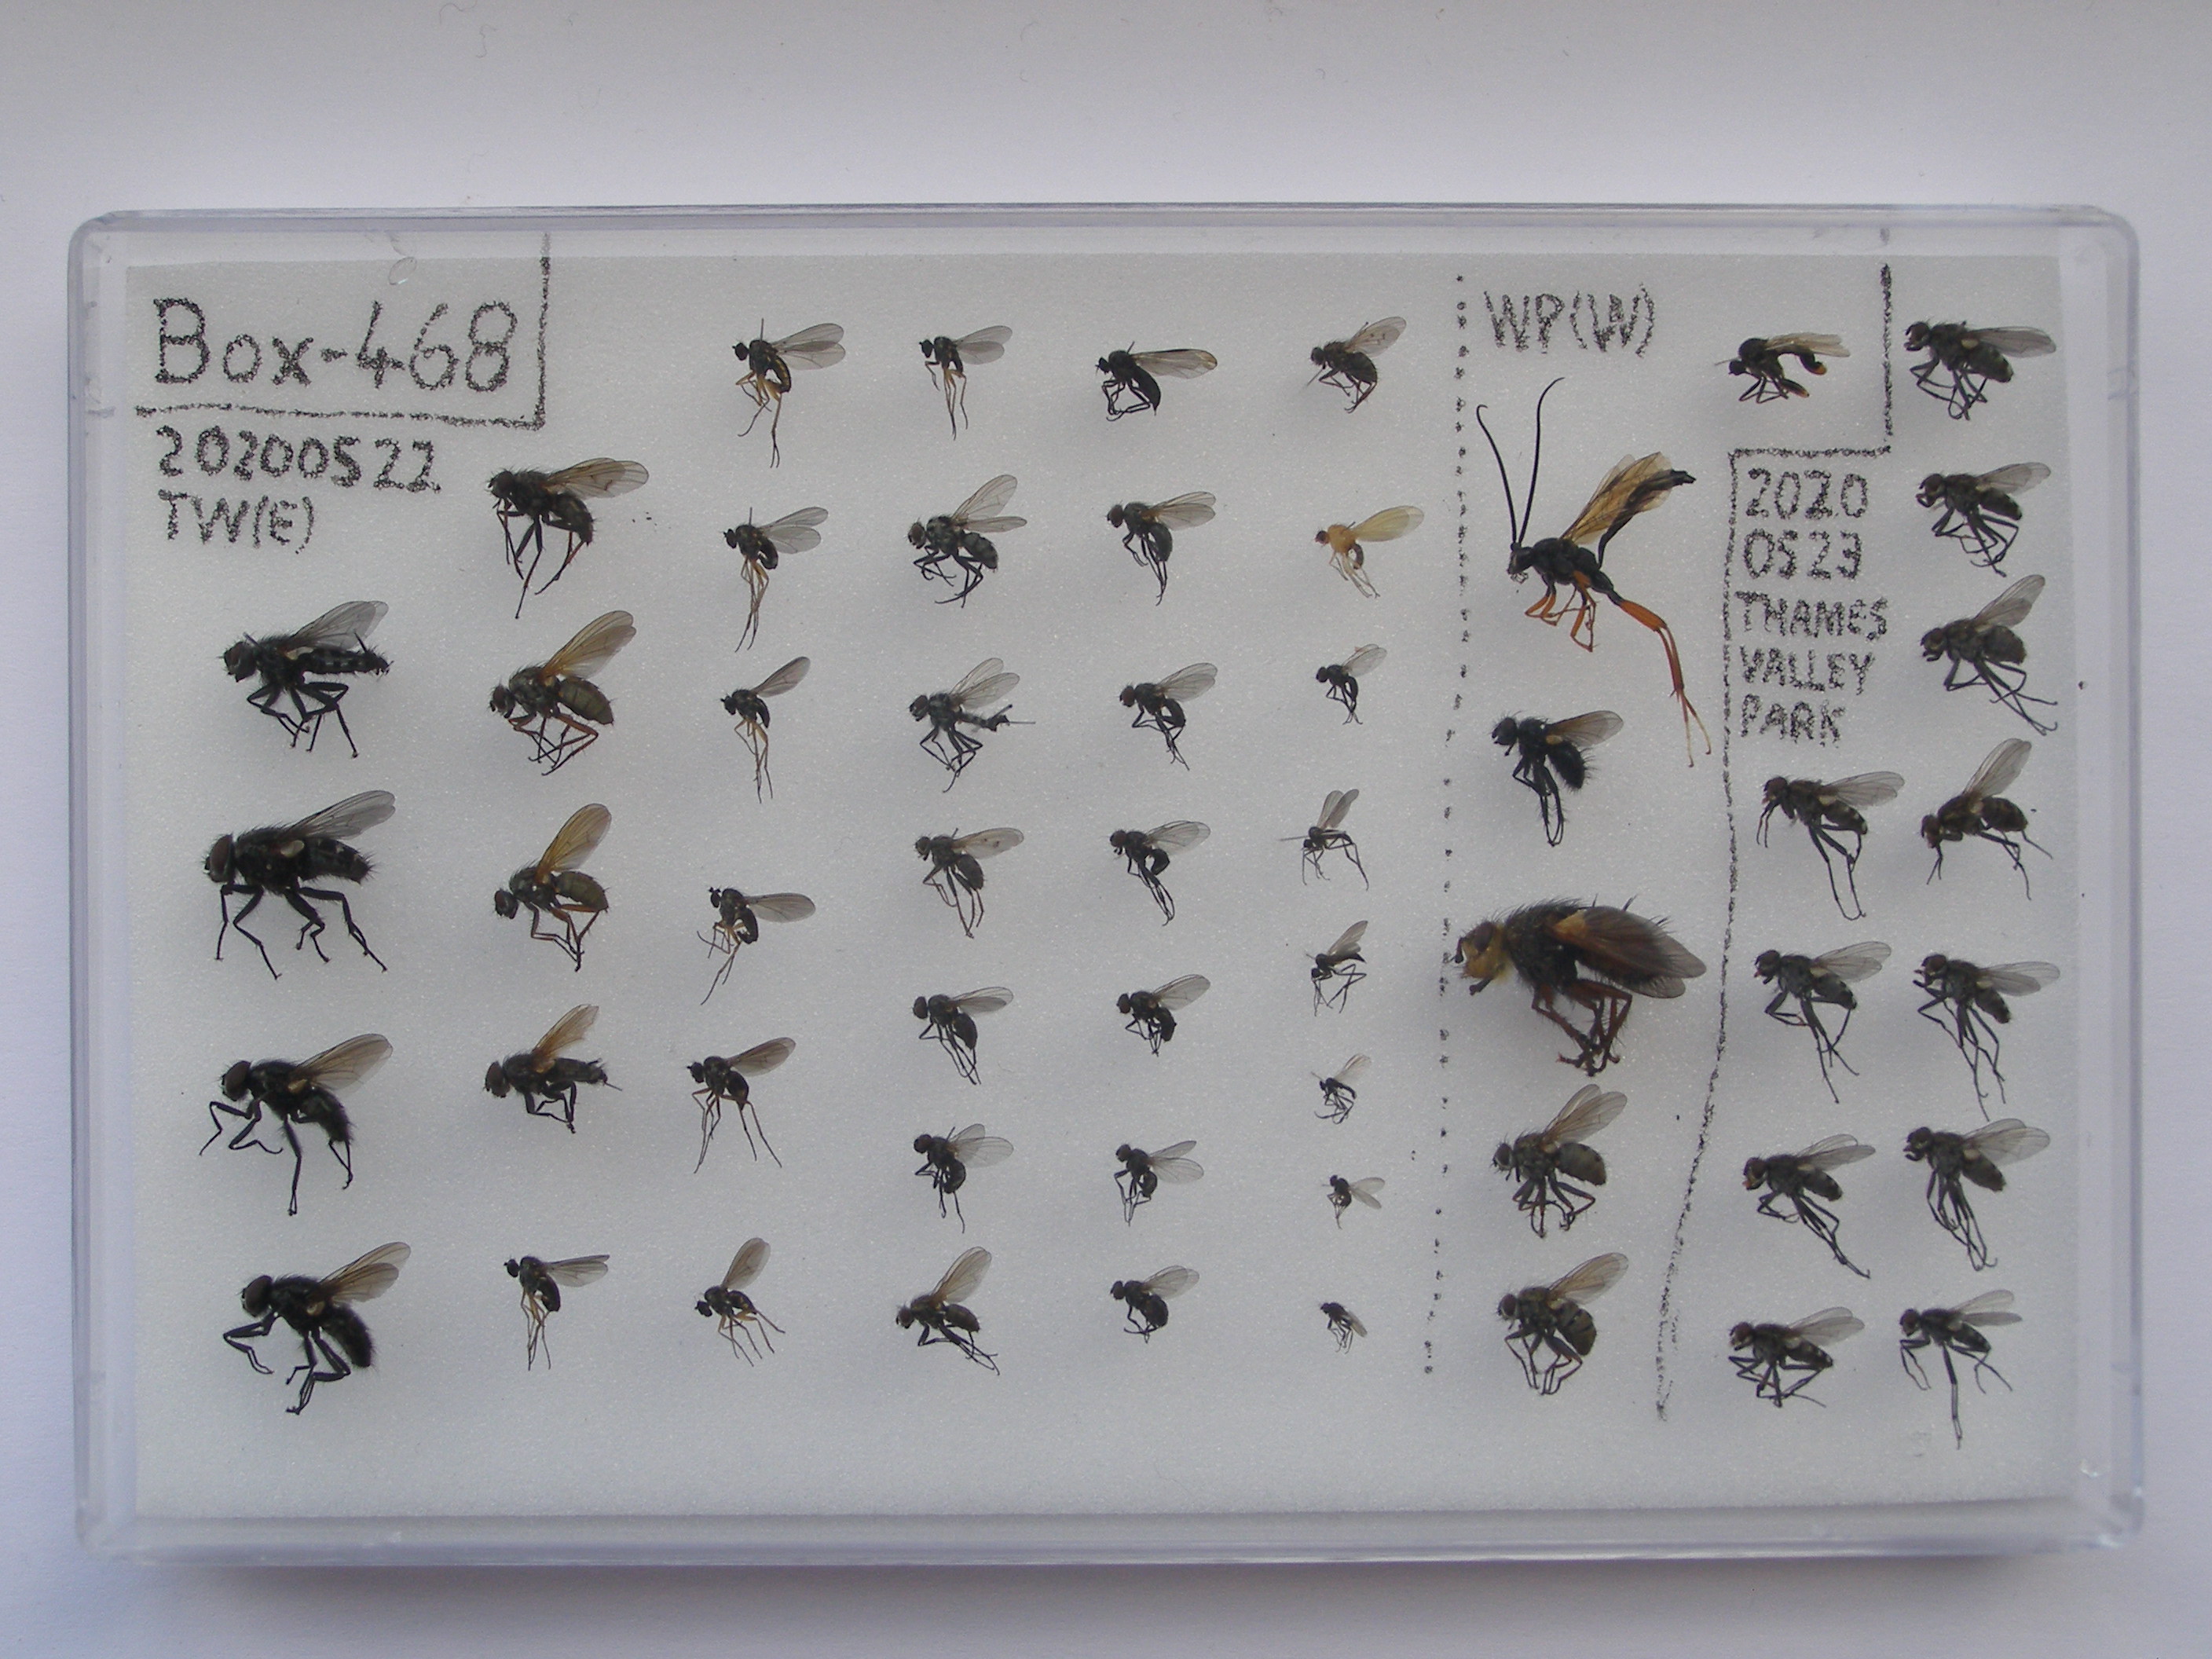 Box-468
20200522
TW(E)
WP(W)
2020
0523
THAMES
VALLEY
PARK